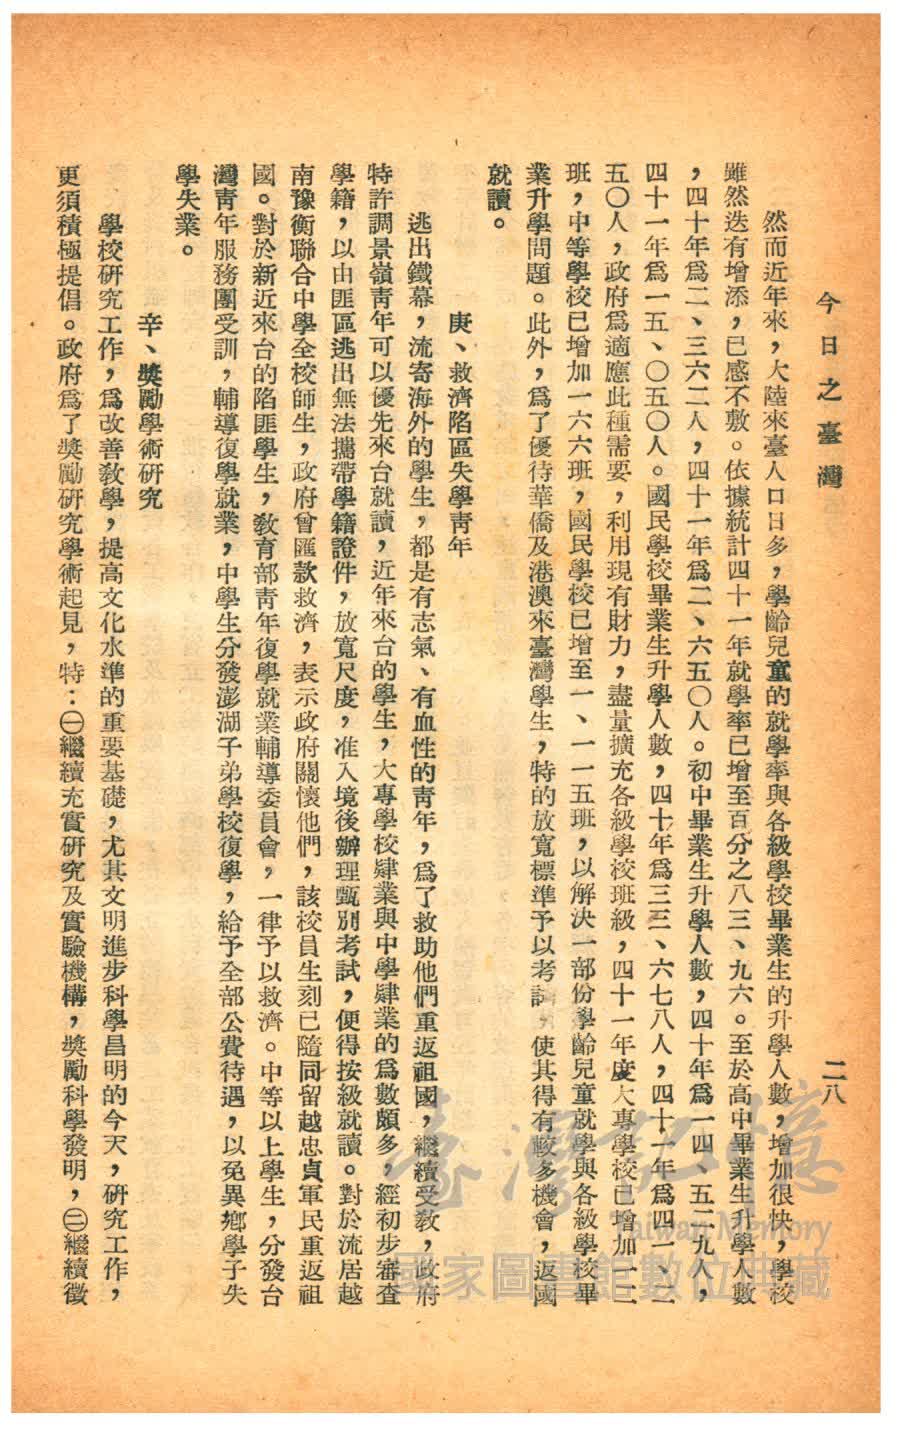 今日之臺灣
二八
然而近年來，大陸來臺人口日多，學齡兒童的就學率與各級學校畢業生的升學人數，增加很快，學校
雖然迭有增添，已感不敷。依據統計四十一年就學率已增至百分之八三、九六。至於高中畢業生升學人數
，四十年爲二、三六二人，四十一年爲二、六五〇人。初中畢業生升學人數，四十年爲一四、五二九人，
四十一年爲一五、〇五〇人。國民學校畢業生升學人數，四十年爲三三、六七八人，四十一年爲四一、二
五〇人，政府爲適應此種需要，利用現有財力，盡量擴充各級學校班級，四十一年度大專學校已增加一二
班，中等學校已增加一六六班，國民學校已增至一、一一五班，以解決一部份學齡兒童就學與各級學校畢
業升學問題。此外，爲了優待華僑及港澳來臺灣學生，特的放寬標準予以考試，使其得有較多機會，返國
就讀。
庚、救濟陷區失學靑年
逃出鐵幕，流寄海外的學生，都是有志氣、有血性的靑年，爲了救助他們重返祖國，繼續受敎，政府
特許調景嶺靑年可以優先來台就讀，近年來台的學生，大專學校肄業與中學肄業的爲數頗多，經初步審查
學籍，以由匪區逃出無法攜帶學籍證件，放寬尺度，准入境後辦理甄別考試，便得按級就讀。對於流居越
南豫衡聯合中學全校師生，政府曾匯款救濟，表示政府關懷他們，該校員生刻已隨同留越忠貞軍民重返祖
國。對於新近來台的陷匪學生，敎育部靑年復學就業輔導委員會，一律予以救濟。中等以上學生，分發台
灣靑年服務團受訓，輔導復學就業，中學生分發澎湖子弟學校復學，給予全部公費待遇，以免異鄕學子失
學失業。
辛、獎勵學術研究
學校研究工作，爲改善敎學，提高文化水準的重要基礎，尤其文明進步科學昌明的今天，研究工作，
更須積極提倡。政府爲了獎勵研究學術起見，特：㊀繼續充實研究及實驗機構，獎勵科學發明，㊁繼續徵
臺灣記憶
Taiwan Memory
國家圖書館數位典藏